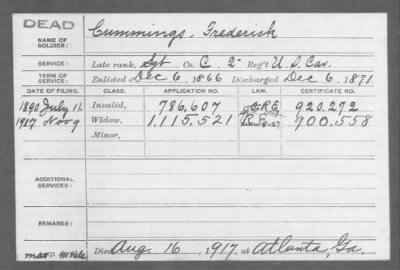 DEAD
NAME OF SOLDIER: Cummings, Frederick
SERVICE: Late rank, Sgt Co. C. 2" Reg't U.S. Cav.
TERM OF SERVICE: Enlisted Dec 6, 1866 Discharged Dec 6, 1871
DATE OF FILING. CLASS. APPLICATION NO. LAW. CERTIFICATE NO.
1890 July 11. Invalid, 786,607 G.R.E. 920.272
1917 Nov 9 Widow, 1,115,521 900.558
Minor,
ADDITIONAL SERVICES:
REMARKS:
Died Aug. 16, 1917, at Atlanta, Ga.